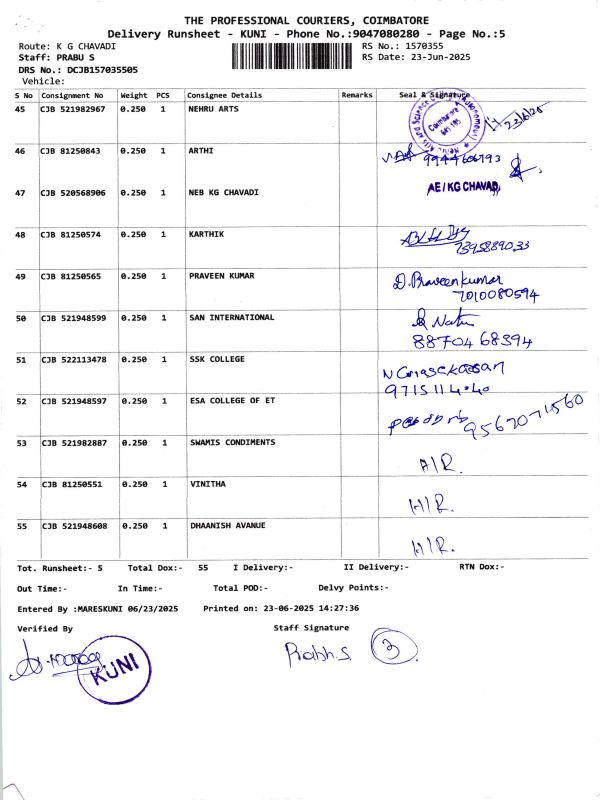 THE PROFESSIONAL COURIERS, COIMBATORE
Delivery Runsheet - KUNI - Phone No.:9047080280 - Page No.:5
Route: K G CHAVADI RS No.: 1570355
Staff: PRABU S RS Date: 23-Jun-2025
DRS No.: DCJB157035505
Vehicle:
S No Consignment No Weight PCS Consignee Details Remarks Seal & Signature
45 CJB 521982967 0.250 1 NEHRU ARTS 23/6/25
46 CJB 81250843 0.250 1 ARTHI 9944606793
47 CJB 520568906 0.250 1 NEB KG CHAVADI AE/KG CHAVADI
48 CJB 81250574 0.250 1 KARTHIK 7395889033
49 CJB 81250565 0.250 1 PRAVEEN KUMAR D.Praveenkumar
7010080594
50 CJB 521948599 0.250 1 SAN INTERNATIONAL
8870468394
51 CJB 522113478 0.250 1 SSK COLLEGE
52 CJB 521948597 0.250 1 ESA COLLEGE OF ET 9567071560
53 CJB 521982887 0.250 1 SWAMIS CONDIMENTS A/R.
54 CJB 81250551 0.250 1 VINITHA H/R.
55 CJB 521948608 0.250 1 DHAANISH AVANUE H/R.
Tot. Runsheet:- 5 Total Dox:- 55 I Delivery:- II Delivery:- RTN Dox:-
Out Time:- In Time:- Total POD:- Delvy Points:-
Entered By :MARESKUNI 06/23/2025 Printed on: 23-06-2025 14:27:36
Verified By Staff Signature
KUNI Prabh.S 3